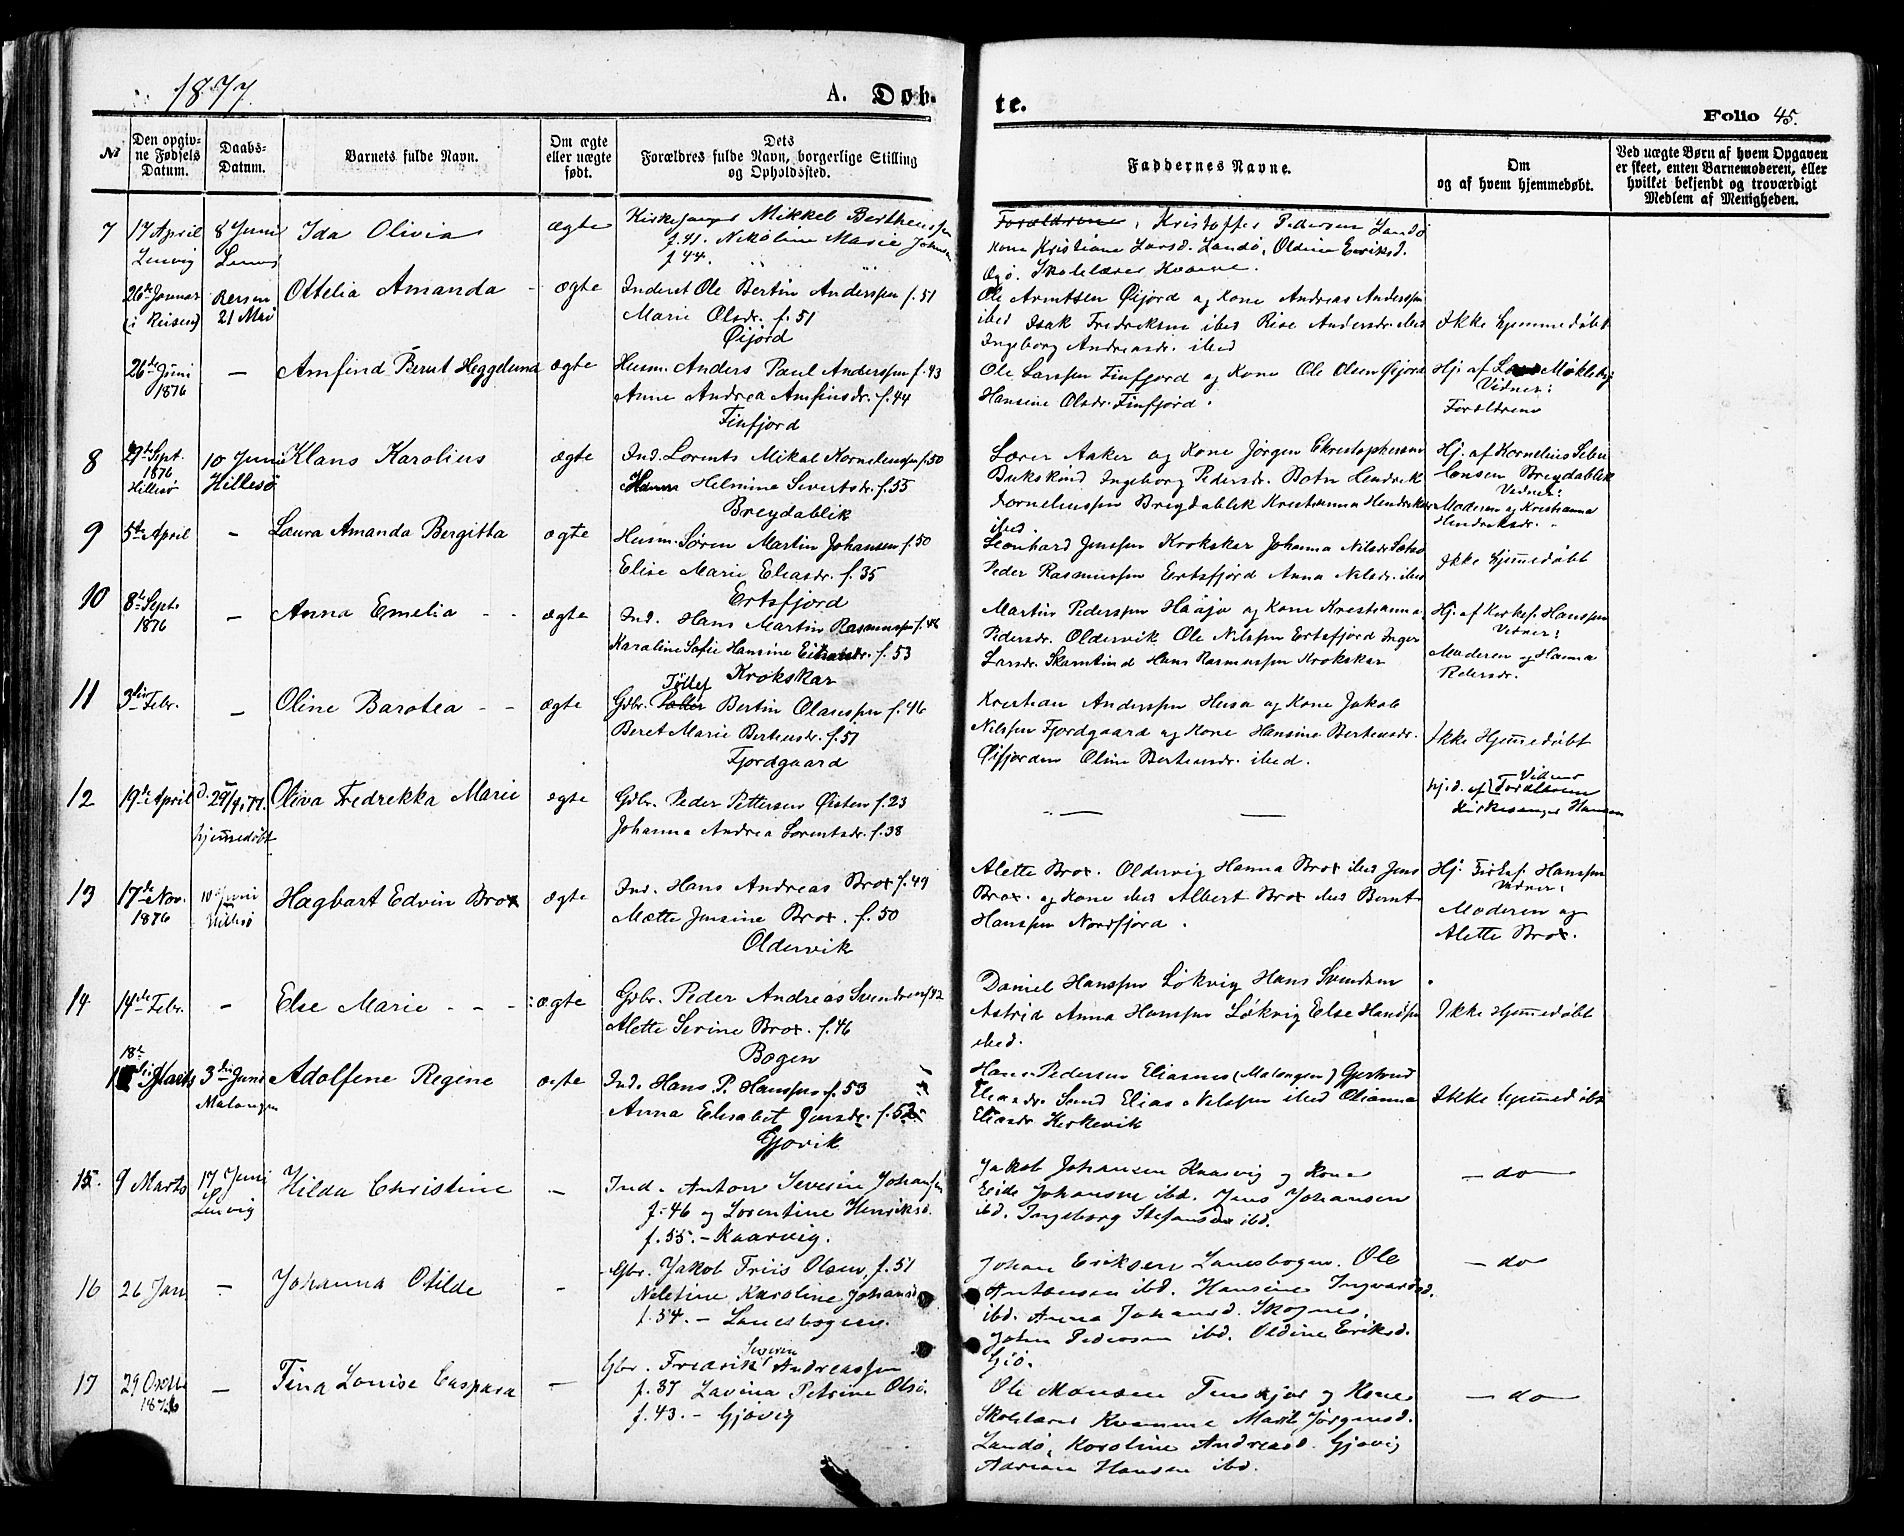 1877.
A. Døb-
te.
Folio 45.
№
Den opgiv-
ne Fødsels
Datum.
Daabs-
Datum.
Barnets fulde Navn.
Om ægte
eller uægte
født.
Dets
Forældres fulde Navn, borgerlige Stilling
og Opholdssted.
Faddernes Navne.
Om
og af hvem hjemmedøbt.
Ved uægte Børn af hvem Opgaven
er skeet, enten Barnemoderen, eller
hvilket bekjendt og troværdigt
Medlem af Menigheden.
7
17 April
Lenvig
8 Juni
Ida Olivia
ægte
Kirkesanger Mikkel Bertheussen
f.41. Nikoline Marie
f 44.
Forældrene, Kristoffer Pedersen Landø
Kone Kristiane Larsd. Landø, Oldine Eriksd.
Skolelærer
26de Januar
(i Reisen)
21 Mai
Ottelia Amanda -
ægte
Inderst Ole Bertin Anderssen f. 51
Marie Olsdr. f. 51
Øijord
Ole Arntsen Øijord og Kone Andreas Anderssen
ibed Isak Fredriksen ibed Andersdr. ibed
Ingeborg Andreasdr. ibed
Ikke hjemmedøbt
26de Juni
1876
-
Arnfind Bernt Heggelund
ægte
Husm. Anders Paul Anderssen f. 43
Anne Andrea Arnfinsdr. f. 44
Finfjord
Ole Larssen Finfjord og Kone Ole Olsen Øijord
Hansine Olsdr. Finfjord.
Hj. af
Vidner:
Forældrene
8
Sept.
1876
Hillesø
10 Juni
Hillesø
Klaus Karolius
ægte
Ind. Lorents Mikal Korneliussen f. 50
Helmine Sivertsdr. f. 55
Breydablik
Lærer Aaker og Kone Jørgen
Bukskind Ingeborg Pedersdr. Botn Hendrik
Korneliussen Breydablik Krestianna
ibed.
Hj. af Kornelius
Breydablik
Vidner:
Moderen og Kristianna
Hendriksdr.
9
5te April
-
Laura Amanda Bergitha
ægte
Husm. Søren Martin Johansen f. 50
Elise Marie Eliasdr. f. 35
Ertsfjord
Leonhard Jenssen Krokskar Johanna Nilsdr
Peder Rasmussen Ertsfjord Anna Nilsdr. ibed
Ikke hjemmedøbt
10
8de Sept.
1876
-
Anna Emelia - -
ægte
Ind. Hans Martin Rasmussen f. 46
Karoline Sofie Hansine f. 53
Krokskar
Martin Pederssen Haaja og Kone Krestianna
Pedersdr. Oldervik Ole Nilssen Ertsfjord Inger
Larsdr. Hans Rasmussen Krokskar
Hj. af Kirkes. Hanssen
Vidner:
Moderen og Hanna
Pedersdr.
11
3die Febr.
-
Oline Barotea - -
ægte
Tollef
Gdbr. Bertin Olaussen f. 46
Beret Marie Bertensdr. f. 51
Fjordgaard
Krestian Anderssen Husø og Kone Jakob
Nilssen Fjordgaard og Kone Hansine Bertensdr.
Øifjorden Oline Bertensdr. ibed.
Ikke Hjemmedøbt
12
19de April
d. 29/4.77
hjemmedøbt
Oliva Fredrekka Marie
ægte
Gdbr. Peder Pettersen f. 23
Johanna Andrea Lorentsdr. f. 38
— —
hj.d. af Vidner
Forældrene
Kirkesanger Hanssen
13
17de Nov.
1876
10 Juni
Hillesø
Hagbart Edvin Brox
ægte
Ind. Hans Andreas Brox f. 49
Mætte Jensine Brox. f. 50
Oldervik
Alette Brox. Oldervig Hanna Brox ibed Jens
Brox. og Kone ibed Albert Brox ibed Bernt
Hanssen Nordfjord.
Hj. Hanssen
Vidner:
Moderen og
Alette Brox.
14
14de Febr.
-
Else Marie - - -
ægte
Gdbr. Peder Andreas Svendsen f. 42
Alette Serine Brox. f. 46
Bogen
Daniel Hanssen Løkvig Hans Svendsen
Astrid Anna Hanssen Løkvig Else Hanssen
ibed.
Ikke Hjemmedøbt
18de
Marts
3die Juni
Malangen
Adolfine Regine
ægte
Ind. Hans P. Hanssen f. 53
Anna Elisabet Jensdr. f. 52
Gjøvik
Hans Pedersen (Malangen) Gjertrud
Eliasdr. Sand Elias Nilssen ibed Olianna
Eliasdr. Heskevik
Ikke hjemmedøbt
15.
9 Marts
17 Juni
Lenvig
Hilda Christine
-
Ind. Anton Severin Johansen
f. 46 og Lorentine Henriksd.
f. 55. - Kaarvig.
Jakob Johansen Kaarvig og Kone
Johansen ibd. Jens Johansen
ibd. Ingeborg Stefansen ibd.
- do -
16
26 Jan.
-
Johanna Otilde
-
Gbr. Jakob Friis Olsen, f. 51
Karoline Johansd.
f. 54. - Lanesbogen.
Johan Eriksen Lanesbogen. Ole
Antonsen ibd. Hansine Ingvardsd.
ibd. Anna Johansd. Skognes,
John Pedersen ibd. Oldine Eriksd.
Giø.
- do
17
29
1876
-
Tina Louise Caspara
-
Severin
Gbr. Fredrik Andreassen
f. 37 Lavina Petrine Olsd.
f. 43. - Gjøvig
Ole Monsen og Kone
Skolelærer Kvamme Marit Jørgensd.
Landø, Karoline Andreasd. Gjøvig
Adrian Hansen ibd.
- do -